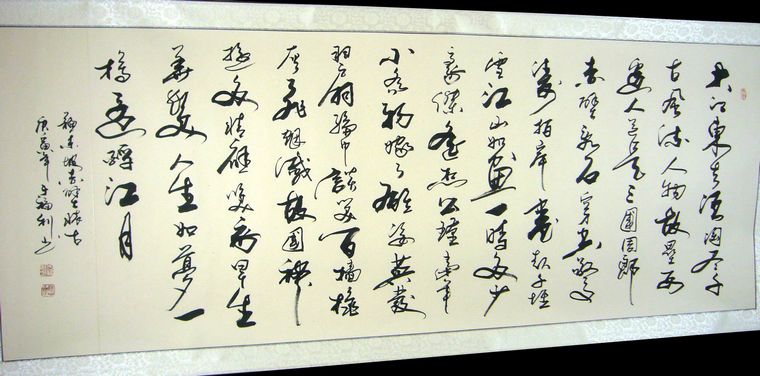 大江東去浪淘尽千
古風流人物故垒西
边人道是三國周郎
赤壁乱石穿空驚
涛拍岸卷起千堆
雪江山如画一時多少
豪傑遥想公瑾当年
小乔初嫁了雄姿英發
羽扇綸巾談笑间樯橹
灰飛烟滅故國神
遊多情應笑我早生
華髮人生如夢一
樽還酹江月
蘇東坡赤壁懷古
庚寅年王福利书